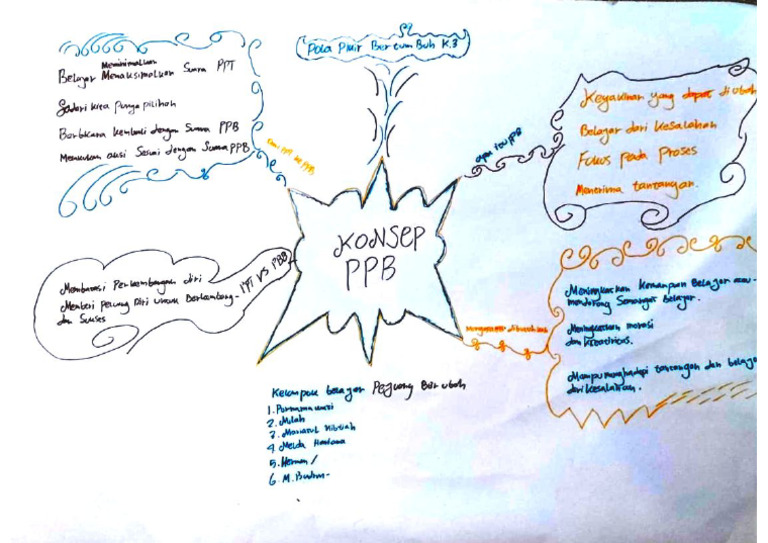 Pola Pikir Bertumbuh K.3
Meminimalkan
Belajar Menaksimalkan Suara PPT
Sadari kita punya pilihan
Berbicara kembali dengan Suara PPB
Melakukan aksi Sesuai dengan Suara PPB
Dari PPT ke PPB
apa itu PPB
Keyakinan yang dapat diubah
Belajar dari kesalahan
Fokus pada Proses
Menerima tantangan.
KONSEP
PPB
PPT VS PBB
Membatasi Perkembangan diri
Memberi peluang Diri untuk Berkembang
dan Sukses
Mengapa dibutuhkan
Meningkatkan Kemampuan Belajar atau
mendorong Semangat Belajar.
Meningkatkan
dan Kreativitas.
Mampu menghadapi tantangan dan belajar
dari kesalahan.
Kelompok belajar Pejuang Berubah
1. Purnamawati
2. Milah
3.
4. Melda
5. Herman
6. M.